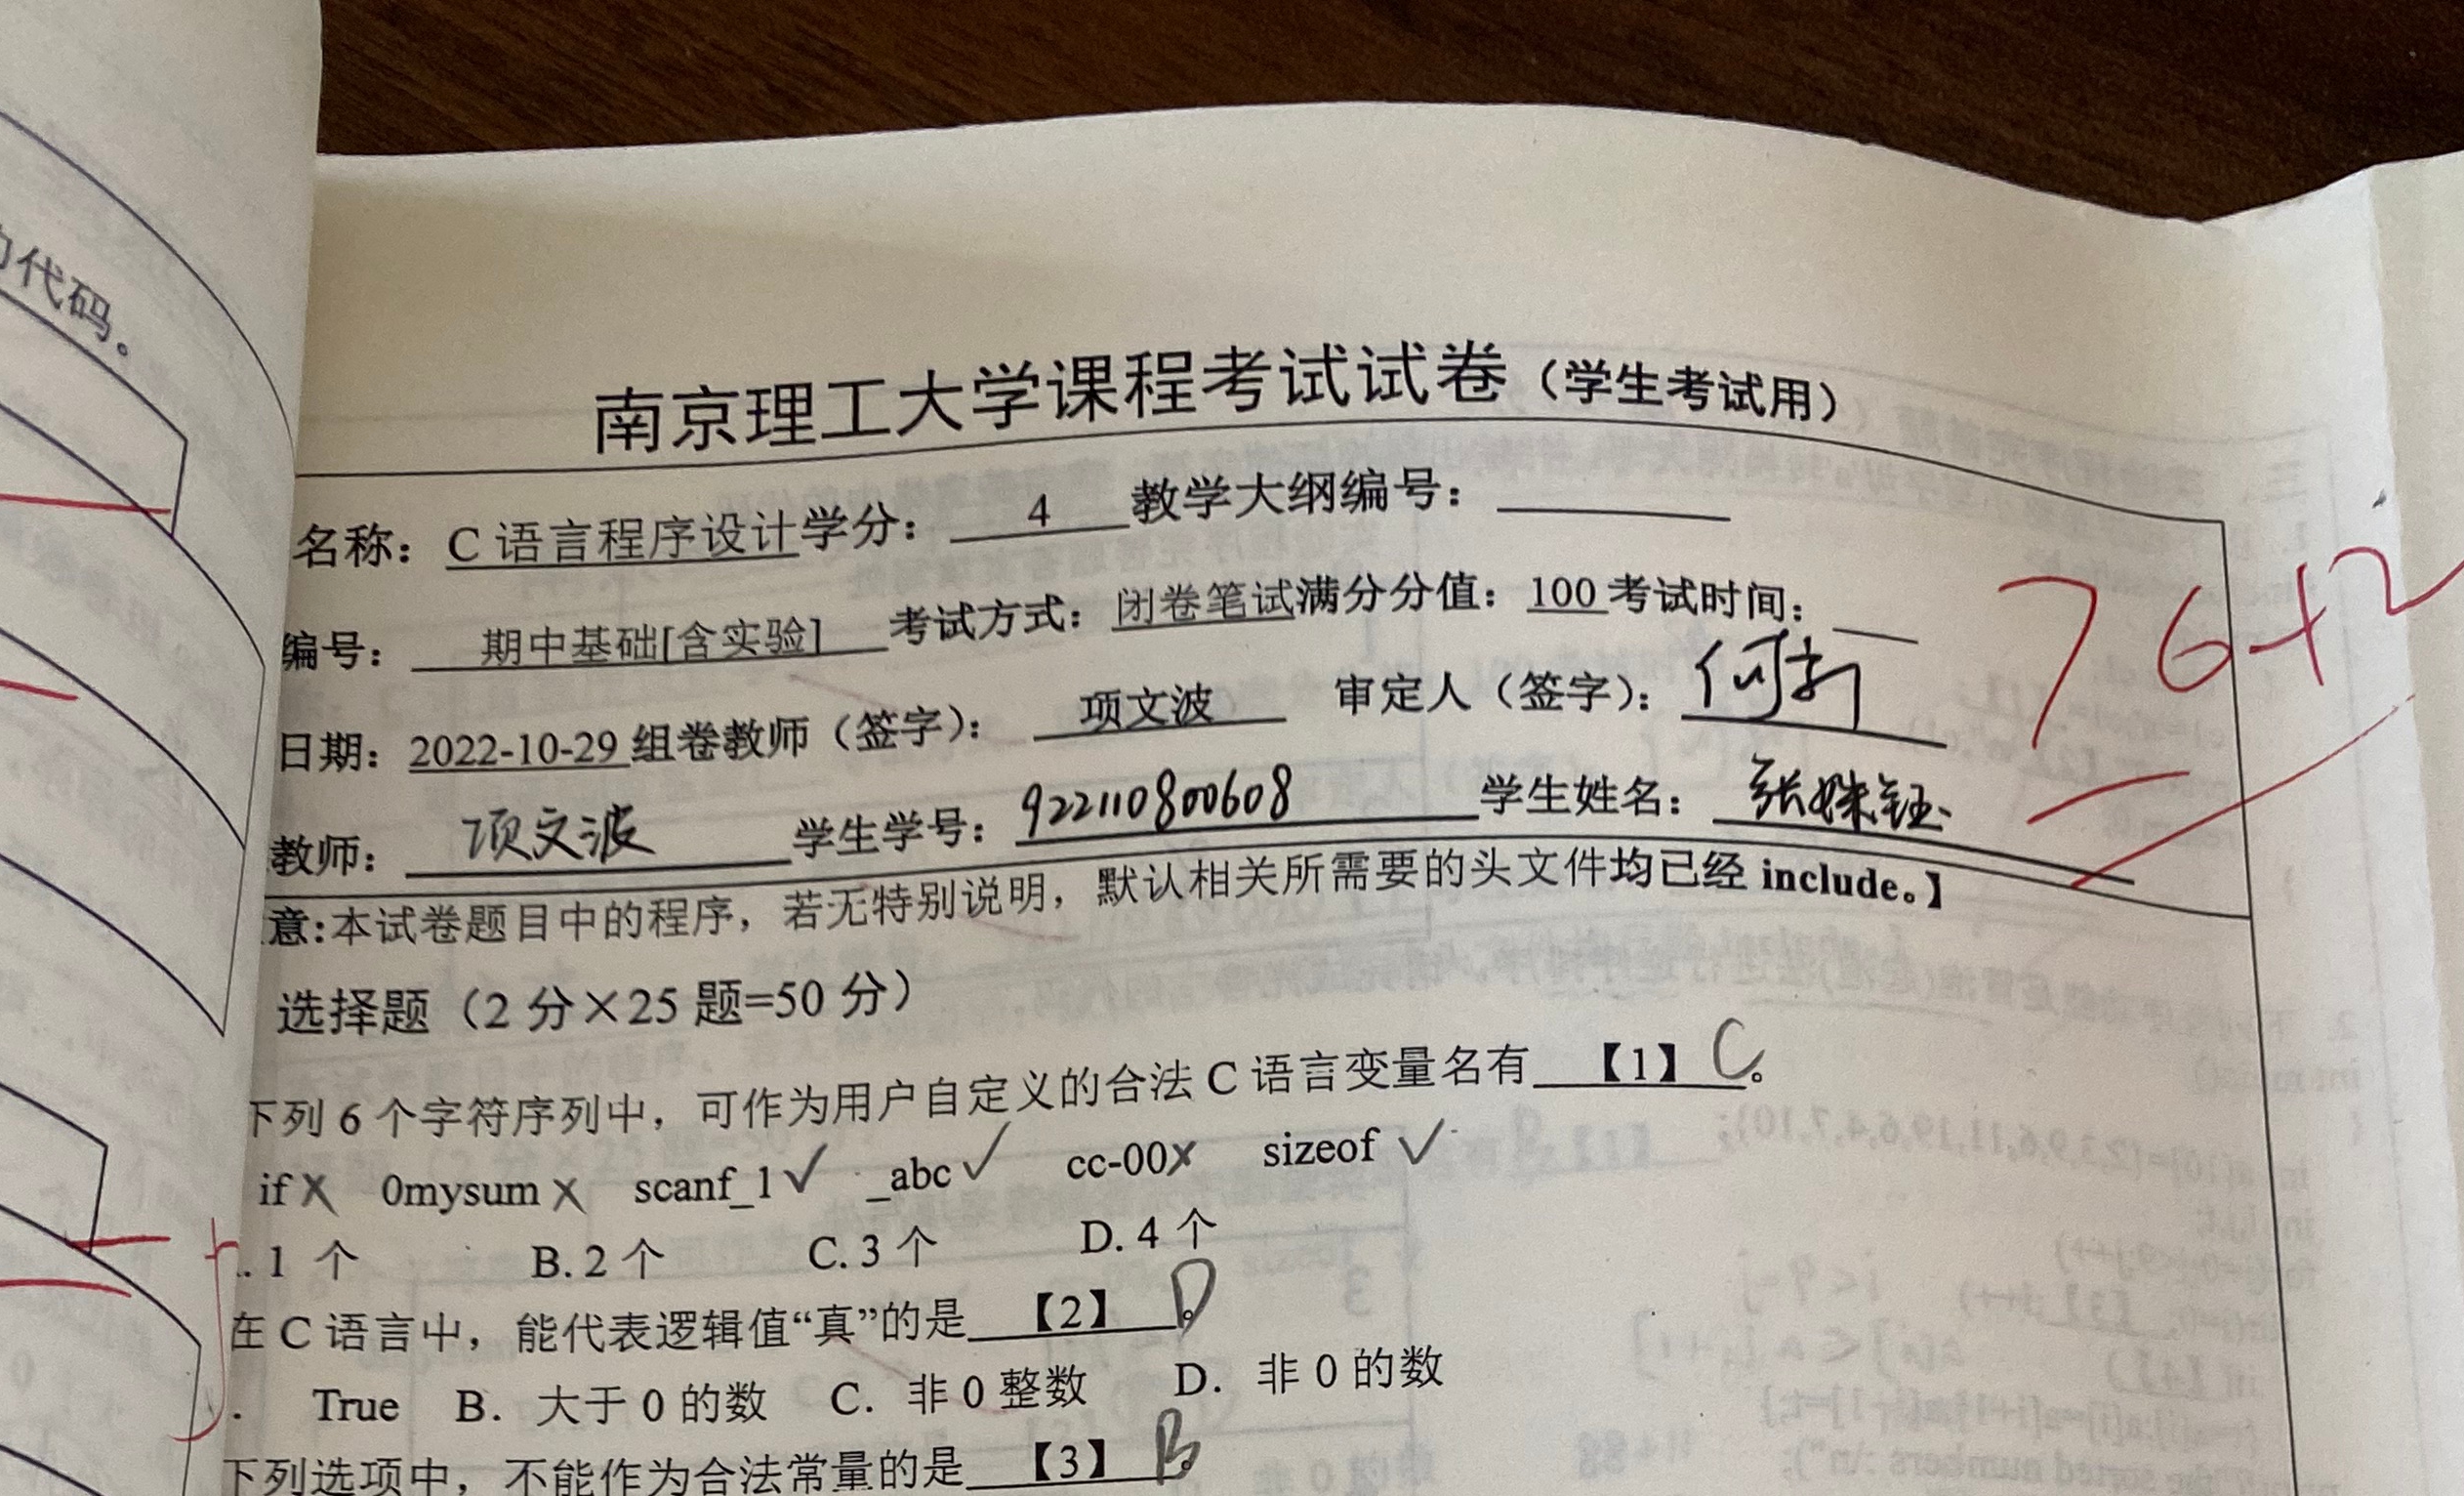 的代码。
南京理工大学课程考试试卷（学生考试用）
名称：C 语言程序设计学分：4 教学大纲编号：
编号：期中基础[含实验] 考试方式：闭卷笔试满分分值：100 考试时间：
日期：2022-10-29 组卷教师（签字）：项文波 审定人（签字）：何新
76+2
教师：项文波 学生学号：922110800608 学生姓名：张姝钰
意:本试卷题目中的程序，若无特别说明，默认相关所需要的头文件均已经 include。】
选择题（2 分×25 题=50 分）
下列 6 个字符序列中，可作为用户自定义的合法 C 语言变量名有 【1】 C 。
if X 0mysum X scanf_1 ✓ _abc ✓ cc-00 X sizeof ✓
. 1 个 B. 2 个 C. 3 个 D. 4 个
在 C 语言中，能代表逻辑值“真”的是 【2】 D 。
. True B. 大于 0 的数 C. 非 0 整数 D. 非 0 的数
下列选项中，不能作为合法常量的是 【3】 B 。